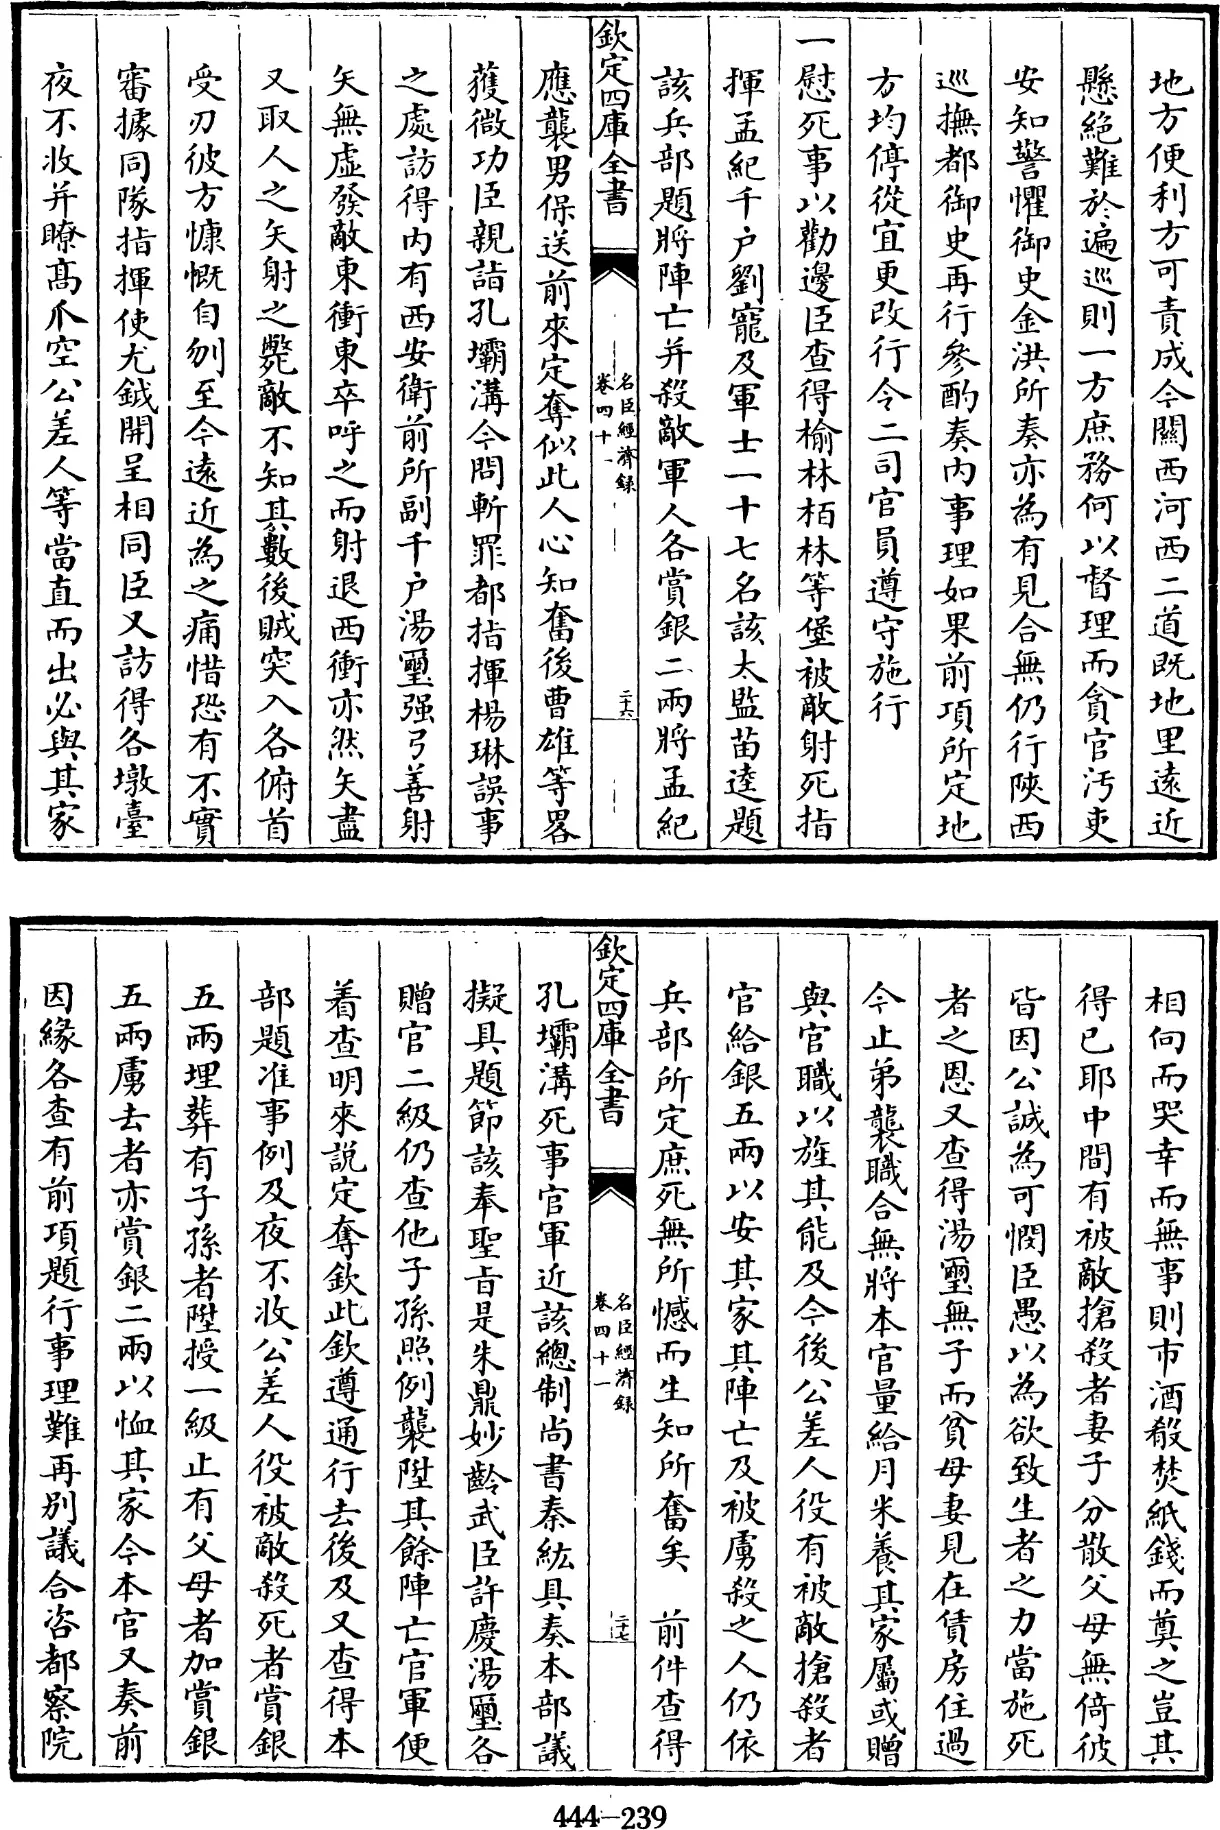 地方便利方可責成今關西河西二道既地里遠近
懸絶難於遍巡則一方庶務何以督理而貪官汚吏
安知警懼御史金洪所奏亦為有見合無仍行陜西
巡撫都御史再行參酌奏内事理如果前項所定地
方均停從宜更改行令二司官員遵守施行
一慰死事以勸邊臣查得榆林栢林等堡被敵射死指
揮孟紀千户劉寵及軍士一十七名該太監苗逵題
該兵部題將陣亡并殺敵軍人各賞銀二兩將孟紀
欽定四庫全書
名臣經濟録
卷四十一
二十六
應襲男保送前來定奪似此人心知奮後曹雄等畧
獲微功臣親詣孔壩溝今問斬罪都指揮楊琳誤事
之處訪得内有西安衛前所副千户湯璽强弓善射
矢無虚發敵東衝東卒呼之而射退西衝亦然矢盡
又取人之矢射之斃敵不知其數後賊突入各俯首
受刃彼方慷慨自刎至今遠近為之痛惜恐有不實
審據同隊指揮使尤鉞開呈相同臣又訪得各墩臺
夜不收并瞭髙爪空公差人等當直而出必與其家
相向而哭幸而無事則市酒殽焚紙錢而奠之豈其
得已耶中間有被敵搶殺者妻子分散父母無倚彼
皆因公誠為可憫臣愚以為欲致生者之力當施死
者之恩又查得湯璽無子而貧母妻見在賃房住過
今止弟襲職合無將本官量給月米養其家屬或贈
與官職以旌其能及今後公差人役有被敵搶殺者
官給銀五兩以安其家其陣亡及被虜殺之人仍依
兵部所定庶死無所憾而生知所奮矣　前件查得
欽定四庫全書
名臣經濟録
卷四十一
二十七
孔壩溝死事官軍近該總制尚書秦紘具奏本部議
擬具題節該奉聖旨是朱鼎妙齡武臣許慶湯璽各
贈官二級仍查他子孫照例襲陞其餘陣亡官軍便
着查明來說定奪欽此欽遵通行去後及又查得本
部題准事例及夜不收公差人役被敵殺死者賞銀
五兩埋葬有子孫者陞授一級止有父母者加賞銀
五兩虜去者亦賞銀二兩以恤其家今本官又奏前
因緣各查有前項題行事理難再别議合咨都察院
444-239